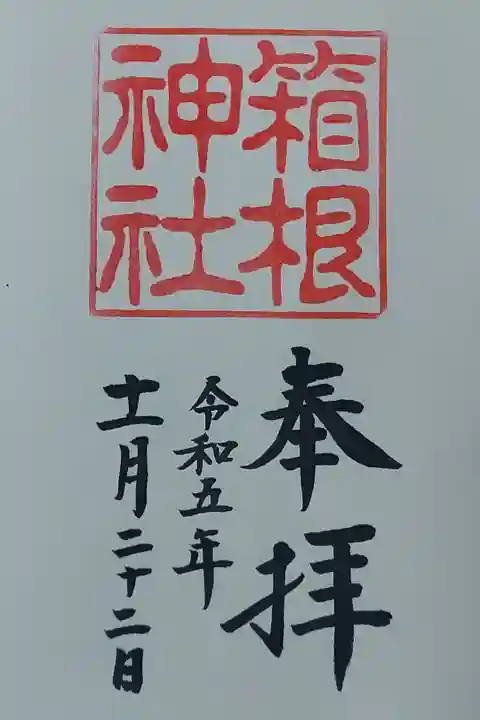 箱根
神社
奉拝
令和五年
十一月二十二日